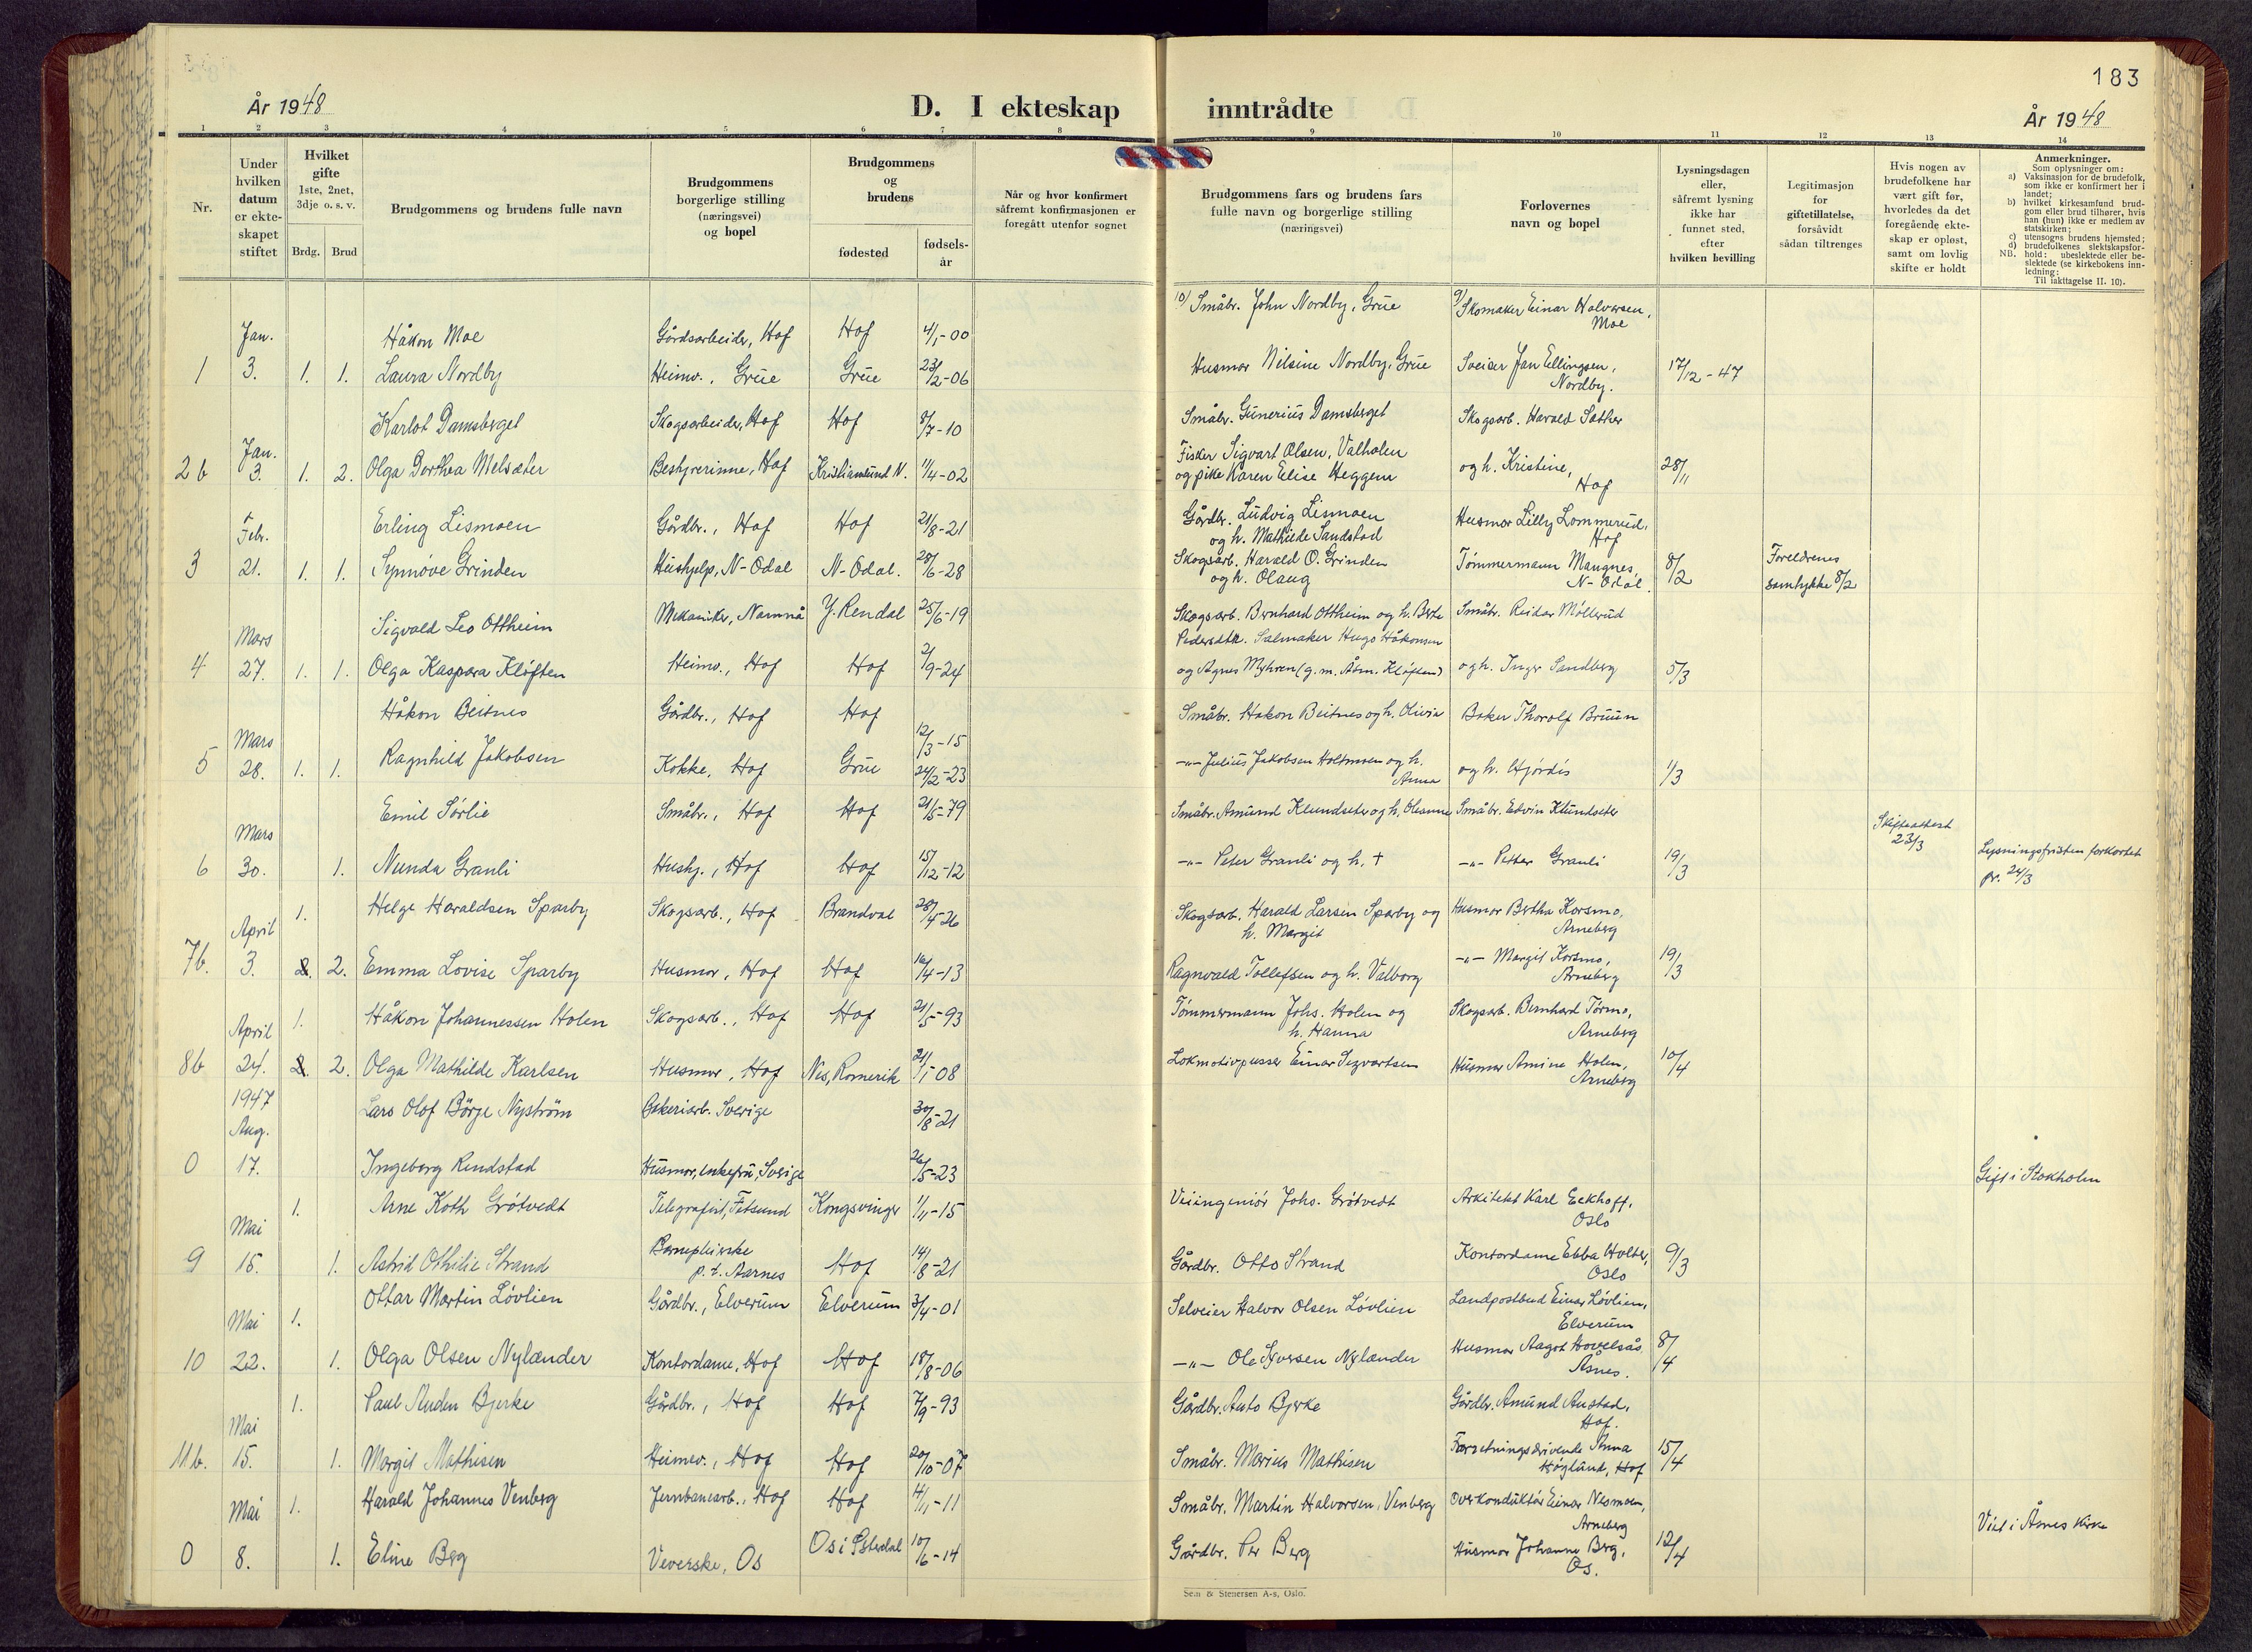 183
År 1948
D. I ekteskap inntrådte
År 1948
1 2 3 4 5 6 7 8 9 10 11 12 13 14
Nr.
Under
hvilken
datum
er ekte-
skapet
stiftet
Hvilket
gifte
1ste, 2net,
3dje o. s. v.
Brdg. Brud
Brudgommens og brudens fulle navn
Brudgommens
borgerlige stilling
(næringsvei)
og bopel
Brudgommens
og
brudens
fødested
fødsels-
år
Når og hvor konfirmert
såfremt konfirmasjonen er
foregått utenfor sognet
Brudgommens fars og brudens fars
fulle navn og borgerlige stilling
(næringsvei)
Forlovernes
navn og bopel
Lysningsdagen
eller,
såfremt lysning
ikke har
funnet sted,
efter
hvilken bevilling
Legitimasjon
for
giftetillatelse,
forsåvidt
sådan tiltrenges
Hvis nogen av
brudefolkene har
vært gift før,
hvorledes da det
foregående ekte-
skap er opløst,
samt om lovlig
skifte er holdt
Anmerkninger.
Som oplysninger om:
a) Vaksinasjon for de brudefolk,
som ikke er konfirmert her i
landet;
b) hvilket kirkesamfund brud-
gom eller brud tilhører, hvis
han (hun) ikke er medlem av
statskirken;
c) utensogns brudens hjemsted;
d) brudefolkenes slektskapsfor-
NB. hold: ubeslektede eller be-
slektede (se kirkebokens inn-
ledning:
Til iakttagelse II. 10).
10/ Småbr. John Nordby, Grue 9/ Skomaker Einar Halvorsen,
Moe
Jan. Håkon Moe Gårdsarbeider, Hof Hof 4/1-00
1 3. 1. 1. Laura Nordby Heimv., Grue Grue 23/2-06 Husmor Nilsine Nordby, Grue Sveiser Jan Ellingsen, 17/12-47
Nordby.
Karlot Damsberget Skogsarbeider, Hof Hof 8/7-10 Småbr. Gunerius Damsberget Skogsarb. Harald Sæther
Jan. Fisker Sigvart Olsen, Valholen
2b 3. 1. 2. Olga Dorthea Melsæter Bestyrerinne, Hof Kristiansund N. 11/4-02 og pike Karen Elise Heggem og h. Kristine, 28/11
Hof
Febr. Erling Lismoen Gårdbr., Hof Hof 21/8-21 Gårdbr. Ludvig Lismoen Husmor Lilly Lommerud,
og h. Mathilde Sandstad Hof
3 21. 1. 1. Synnöve Grinden Hushjelp, N-Odal N-Odal. 28/6-28 Skogsarb. Harald O. Grinden Tømmermann Mangnes, 8/2 Foreldrenes
og h. Olaug N-Odal. samtykke 8/2
Sigvald Leo Ottheim Mekaniker, Namnå Y. Rendal 25/6-19 Skogsarb. Bernhard Ottheim og h. Berte Småbr. Reidar Møllerud
Mars Pedersdtr. Salmaker Hugo Håkonsen
4 27. 1. 1. Olga Kaspara Kløften Heimv., Hof Hof 2/9-24 og Agnes Myhren (g. m. Åsm. Kløften) og h. Inger Sandberg 5/3
Håkon Beitnes Gårdbr., Hof Hof 12/3-15 Småbr. Håkon Beitnes og h. Olivia Baker Thorolf Bruun
Mars
5 28. 1. 1. Ragnhild Jakobsen Kokke, Hof Grue 24/2-23 -"- Julius Jakobsen Holtmoen og h. og h. Hjørdis 1/3
Anna
Emil Sørlie Småbr., Hof Hof 21/5-79 Småbr. Amund Klundseter og h. Oleanne Småbr. Edvin Klundseter
Mars Skifteattest
23/3
6 30. 1. Nunda Granli Hushj., Hof Hof 15/12-12 -"- Peter Granli og h. + -"- Petter Granli 19/3 Lysningsfristen forkortet
pr. 24/3
1. Helge Haraldsen Sparby Skogsarb., Hof Brandval 28/4-26 Skogsarb. Harald Larsen Sparby og Husmor Bertha Korsmo,
April h. Margit Arneberg
7b. 3. 2. 2. Emma Lovise Sparby Husmor, Hof Hof 16/4-13 Ragnvald Tollefsen og h. Valborg -"- Margit Korsmo, 19/3
Arneberg
1. Håkon Johannessen Holen Skogsarb., Hof Hof 21/5-93 Tømmermann Johs. Holen og Skogsarb. Bernhard Tørmo,
April h. Hanna Arneberg
8b 24. 2. 2. Olga Mathilde Karlsen Husmor, Hof Nes, Romerik 21/1-08 Lokomotivpusser Einar Sigvartsen Husmor Amine Holen, 10/4
Arneberg
1947 Lars Olof Börje Nyström Bakeriarb. Sverige 30/8-21
Aug.
0 17. Ingeborg Rindstad Husmor, enkefru, Sverige 26/5-23 Gift i Stokholm
1. Arne Koth Grötvedt Telegrafist, Fetsund Kongsvinger 1/11-15 Veiingeniør Johs. Grötvedt Arkitekt Karl Eckhoff,
Mai Oslo
9 15. 1. Astrid Othilie Strand Barnepleierske Hof 14/8-21 Gårdbr. Otto Strand Kontordame Ebba Holter, 9/3
p. t. Aarnes Oslo
Mai 1. Ottar Martin Lövlien Gårdbr., Elverum Elverum 3/4-01 Selveier Halvor Olsen Lövlien Landpostbud Einar Lövlien,
Elverum
10 22. 1. Olga Olsen Nylænder Kontordame, Hof Hof 18/8-06 -"- Ole Syversen Nylænder Husmor Aagot Hovelsås, 8/4
Åsnes.
1. Paul Auden Bjerke Gårdbr., Hof Hof 7/9-93 Gårdbr. Auto Bjerke Gårdbr. Amund Austad,
Mai Hof.
11b. 15. 1. Margit Mathisen Heimv., Hof Hof 20/10-07 Småbr. Marius Mathisen Forretningsdrivende Anna 15/4
Höglund, Hof
Mai 1. Harald Johannes Venberg Jernbanearb., Hof Hof 14/11-11 Småbr. Martin Halvorsen, Venberg Overkonduktör Einar Nesmoen,
Arneberg
0 8. 1. Eline Berg Veverske, Os Os i Østerdal 10/6-14 Gårdbr. Per Berg Husmor Johanne Berg, 12/4 Viet i Åsnes kirke
Os.
Sem & Stenersen A-s, Oslo.